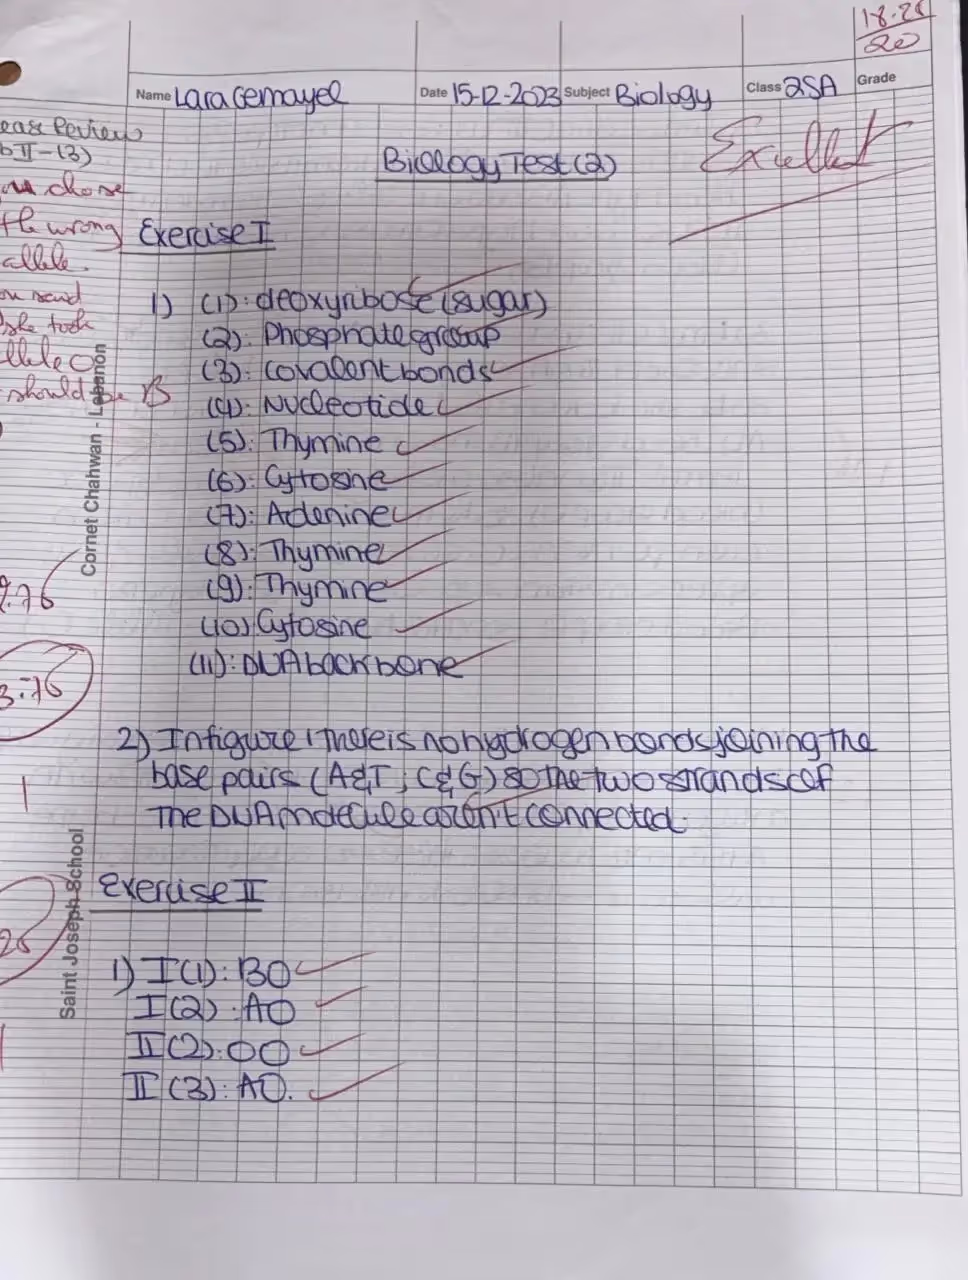 18.25
20
Name Lara Gemayel Date 15-12-2023 Subject Biology Class 2SA Grade
Excellent
Biology Test (2)
Review
II-(3)
chose
the wrong
allele.
said
she took
allele O
should be B
Cornet Chahwan - Lebanon
Saint Joseph School
3.75
1
Exercise I
1) (1): deoxyribose (sugar)
(2): Phosphate group
(3): covalent bonds
(4): Nucleotide
(5): Thymine
(6): Cytosine
(7): Adenine
(8): Thymine
(9): Thymine
(10) Cytosine
(11): DNA backbone
2) In figure 1 there is no hydrogen bonds joining the
base pairs (A&T ; C&G) so the two strands of
the DNA molecule aren't connected.
Exercise II
1) I(1): BO
I(2): AO
II(2): OO
II(3): AO.